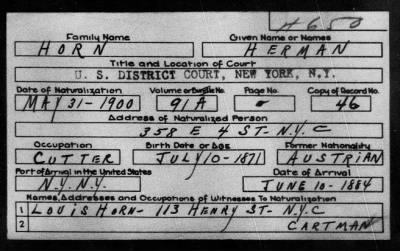 A 650
Family Name Given Name or Names
HORN HERMAN
Title and Location of Court
U. S. DISTRICT COURT, NEW YORK, N.Y.
Date of Naturalization Volume or Bundle No. Page No. Copy of Record No.
MAY 31-1900 91A - 46
Address of Naturalized Person
358 E 4 ST- N.Y. C
Occupation Birth Date or Age Former Nationality
CUTTER JULY 10-1871 AUSTRIAN
Port of Arrival in the United States Date of Arrival
N.Y. N.Y. JUNE 10-1884
Names, Addresses and Occupations of Witnesses To Naturalization
1 LOUIS HORN- 113 HENRY ST- N.Y.C
2 CARTMAN